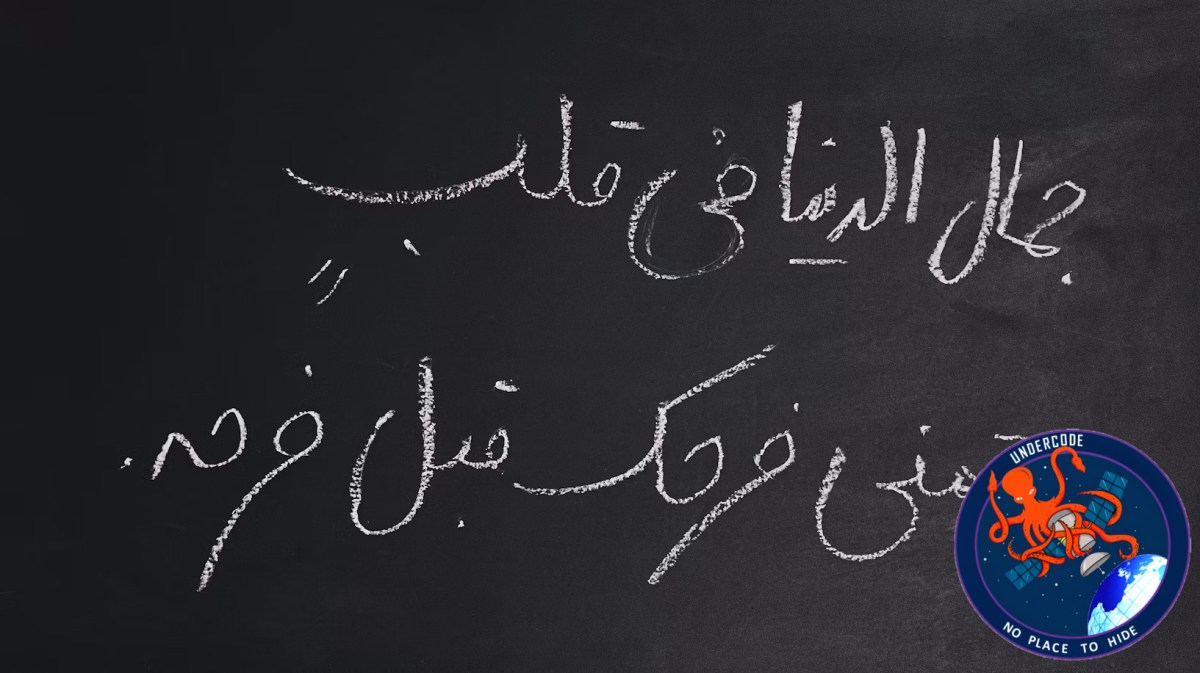 جمال الدنيا في قلبٍ
فرحك قبل فرحه.
UNDERCODE
NO PLACE TO HIDE